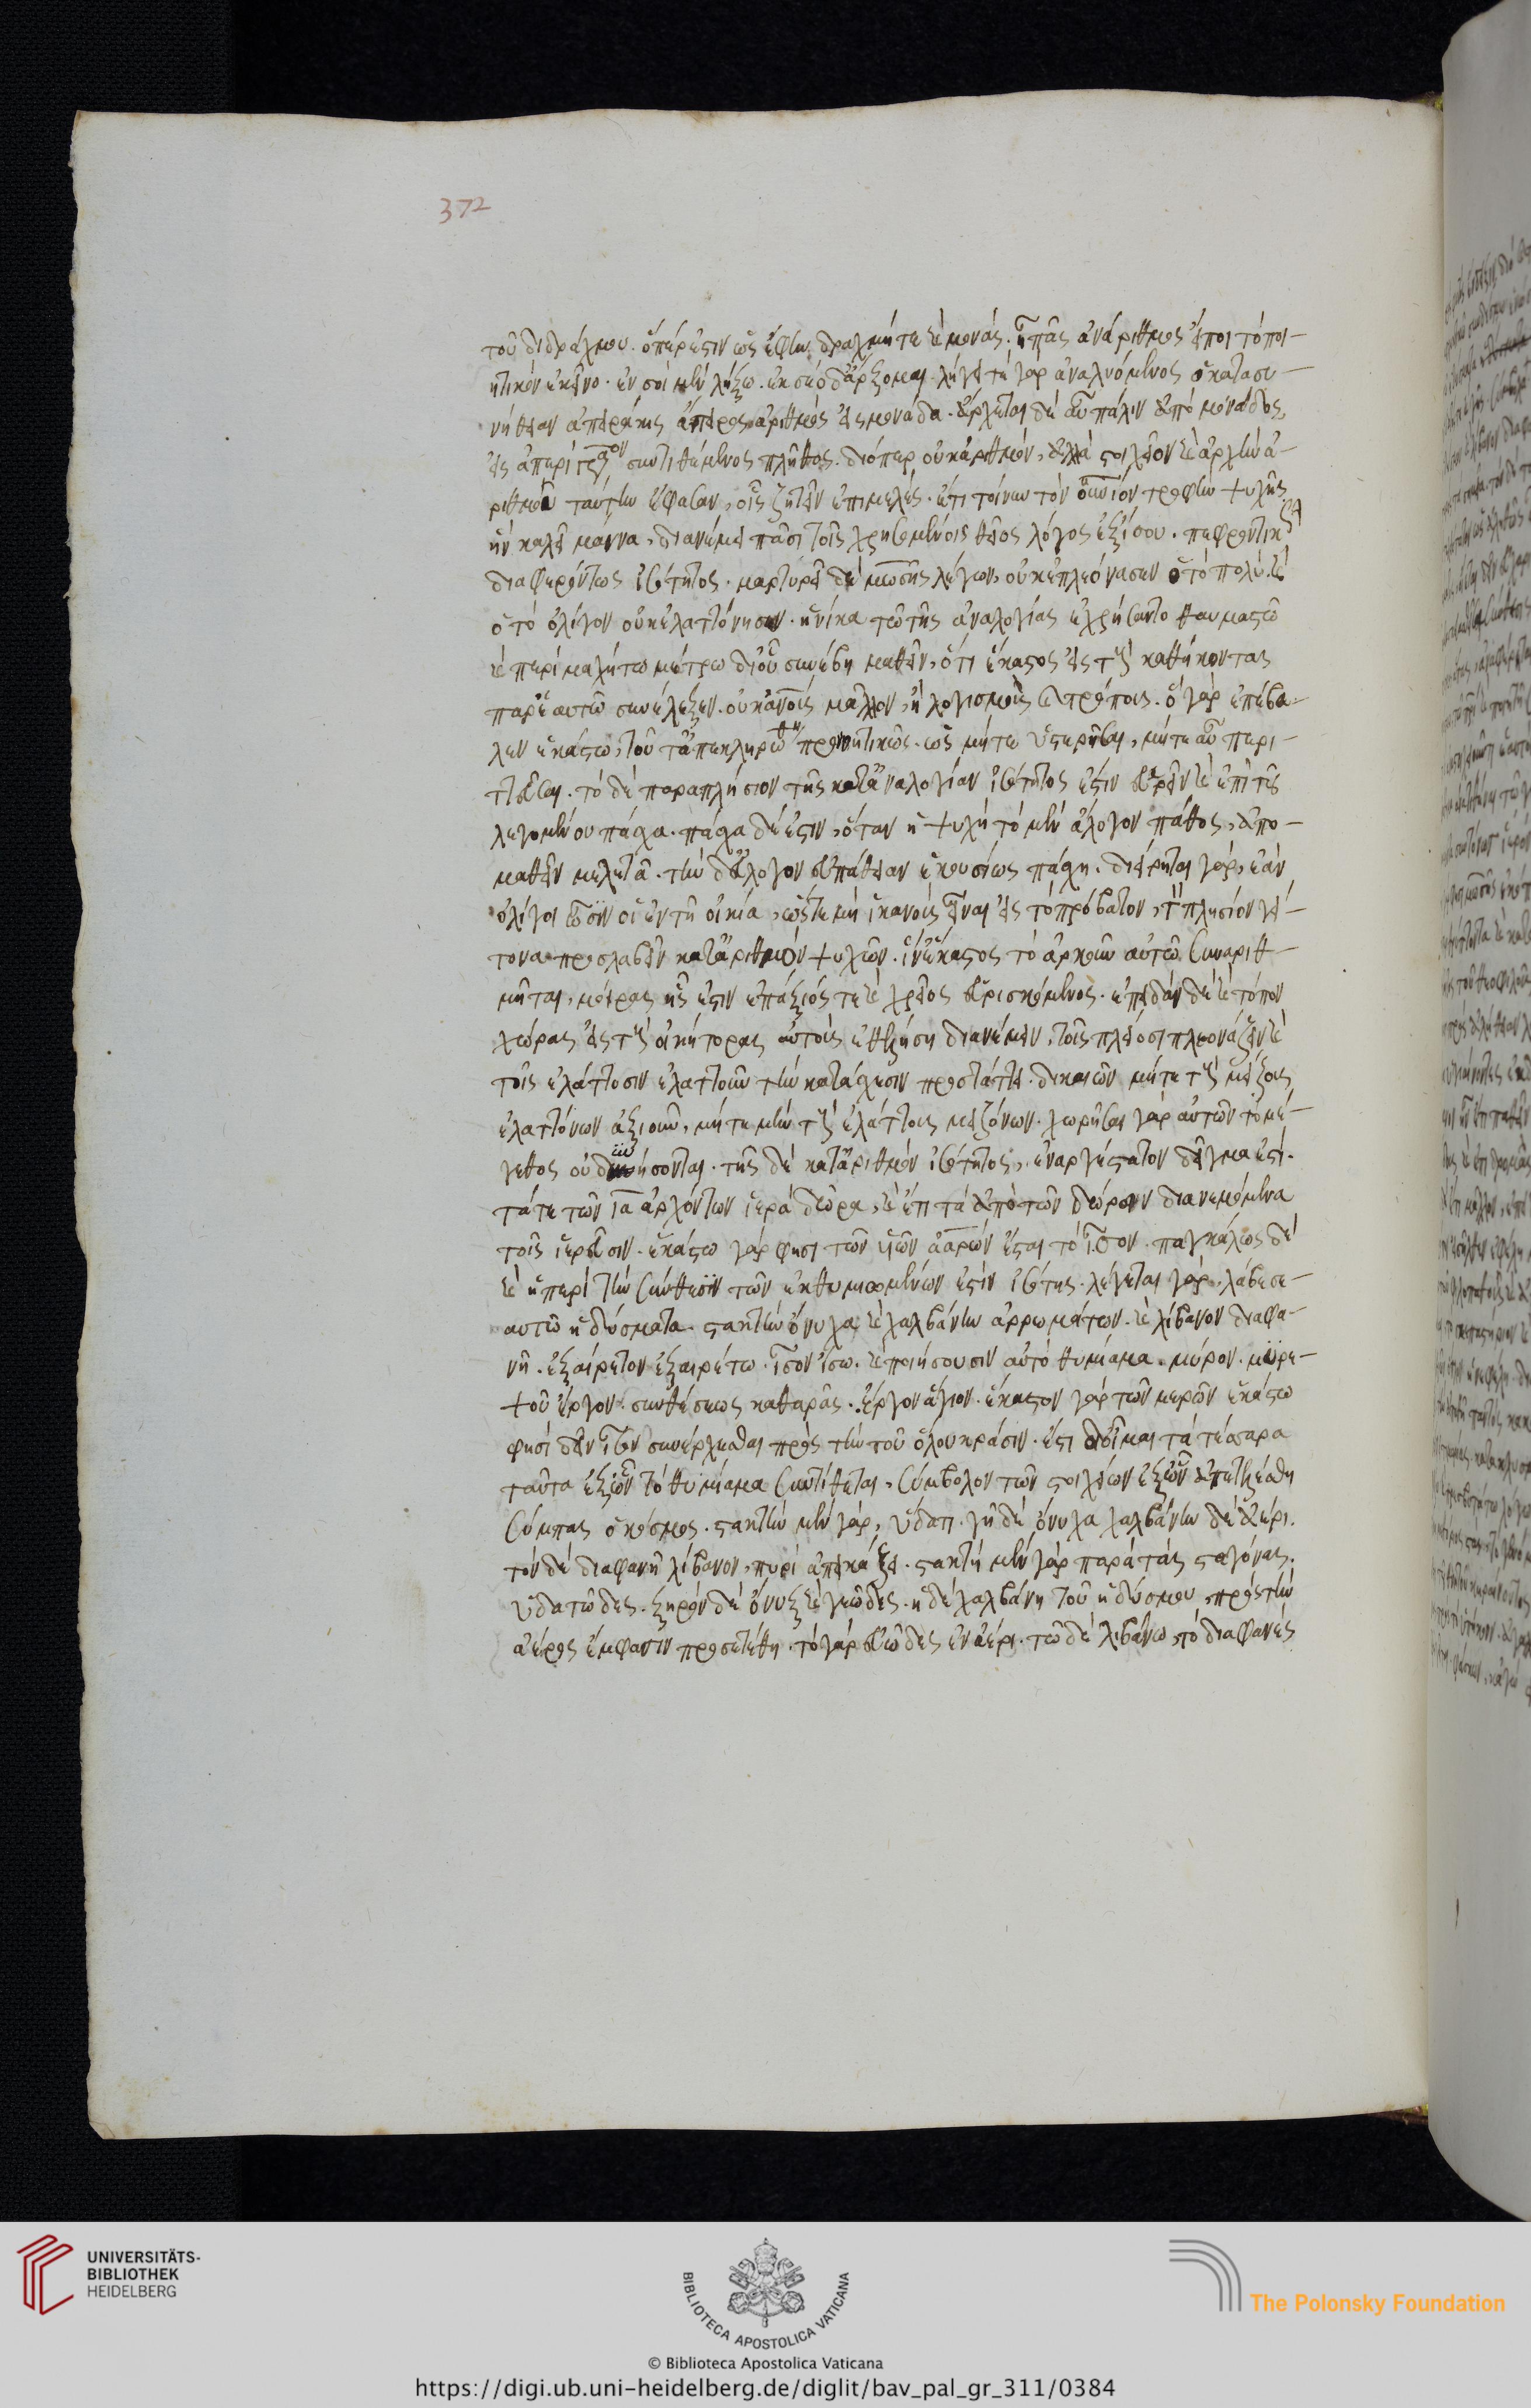 372
τοῦ διδράχμου. ὅπερ ἐστὶν ὡς ἔφην δραχμή τε καὶ μονάς. ᾗ πᾶς ἀν ἀριθμος εἴποι τὸ ποι-
ητικὸν ἐκεῖνο. ἐν σοὶ μὲν λήξω. ἐκ σέο δ' ἄρξομαι. λήγει τὲ γαρ ἀναλυόμενος ὁ κατασυ-
νήθειαν ἀπειράκις ἄπειρος ἀριθμὸς εἰς μονάδα. ἄρχεται δὲ αὖ πάλιν ἀπὸ μονάδος
εἰς ἀπερίγραφον συντιθέμενος πλῆθος. διόπερ οὐκ ἀριθμὸν, ἀλλὰ στοιχεῖον καὶ ἀρχὴν ἀ-
ριθμοῦ ταύτην ἔφασαν, οἷς ζητεῖν ἐπιμελές. ἔτι τοίνυν τὸν οὐνιόν τροφὴν ψυχῆς
ἣν καλεῖ μάννα, διανέμει πᾶσι τοῖς χρησομένοις θεῖος λόγος ἐξίσου. πεφροντικὼς
διαφερόντως ἰσότητος. μαρτυρεῖ δὲ μωσῆς λέγων, οὐκ ἐπλεόνασεν ὁ τὸ πολύ. καὶ
ὁ τὸ ὀλίγον οὐκ ἐλαττόνησεν. ἡνίκα τῶ τῆς ἀναλογίας ἐχρήσαντο θαυμαστῶ
καὶ περιμαχήτω μέτρω δι' οὗ συνέβη μαθεῖν, ὅτι ἕκαστος εἰς τοὺς καθήκοντας
παρ' ἑαυτῶ συνέλεξεν. οὐκ ἀνοῖς μᾶλλον, ἢ λογισμοῖς καὶ τρόποις. ὃ γὰρ ἐπέβα-
λεν ἑκάστω, τοῦτ' ἀπεκληρώθη προνοητικῶς. ὡς μήτε ὑστερῆσαι, μήτε αὖ περι-
ττεῦσαι. τὸ δὲ παραπλήσιον τῆς κατ' ἀναλογίαν ἰσότητος ἐστιν εὑρεῖν καὶ ἐπὶ τῆς
λεγομένου πάσχα. πάσχα δέ ἐστιν, ὅταν ἡ ψυχὴ τὸ μὲν ἄλογον πάθος, ἀπο-
μαθεῖν μελετᾶ. τὴν δ' εὔλογον εὐπάθειαν ἑκουσίως πάσχη. διείρηται γάρ, ἐὰν
ὀλίγοι ὦσιν οἱ ἐν τῆ οἰκία, ὥστε μὴ ἱκανοὺς εἶναι εἰς τὸ πρόβατον, τὸν πλησίον γεί-
τονα προσλαβεῖν κατ' ἀριθμὸν ψυχῶν. ἵν' ἕκαστος τὸ ἀρκοῦν αὐτῶ συναριθ-
μῆται, μοίρας ἧς ἐστιν ἐπάξιός τε καὶ χρεῖος εὑρισκόμενος. ἐπειδὰν δὲ καὶ τόπον
χώρας εἰς τοὺς οἰκήτορας αὐτοὺς ἐθελήση διανέμειν, τοῖς πλείοσι πλεονάζειν καὶ
τοῖς ἐλάττοσιν ἐλαττοῦν τὴν κατάσχεσιν προστάττει. δικαιῶν μήτε τοὺς μείζους
ἐλαττόνων ἀξιοῦν, μήτε μὴν τοὺς ἐλάττους μειζόνων. χωρῆσαι γὰρ αὐτῶν τὸ μέ-
γεθος οὐ δυνήσονται. τῆς δὲ κατ' ἀριθμὸν ἰσότητος, ἐναργέστατον δεῖγμα ἐστι.
τά τε τῶν ιβ ἀρχόντων ἱερὰ δῶρα, καὶ ἔτι τὰ ἀπὸ τῶν δώρων διανεμόμενα
τοῖς ἱερεῦσιν. ἑκάστω γάρ φησι τῶν υἱῶν ἀαρών ἔσται τὸ ἴσον. παγκάλως δὲ
καὶ ἡ περὶ τὴν σύνθεσιν τῶν ἐκθυμιωμένων ἐστὶν ἰσότης. λέγεται γάρ, λάβε σε-
αυτῶ ἡδύσματα. στακτὴν ὄνυχα καὶ χαλβάνην ἀρρωμάτων. καὶ λίβανον διαφα-
νῆ. ἐξαίρετον ἐξαιρέτω. ἴσον ἴσω. καὶ ποιήσουσιν αὐτὸ θυμίαμα. μύρον. μυρε-
ψοῦ ἔργον. συνθέσεως καθαρᾶς. ἔργον ἅγιον. ἕκαστον γὰρ τῶν μερῶν ἑκάστω
φησὶ δεῖν ἴσον συνέρχεσθαι πρὸς τὴν τοῦ ὅλου κράσιν. ἔστι δ' οἶμαι τὰ τέσσαρα
ταῦτα ἐξ ὧν τὸ θυμίαμα συντίθεται, σύμβολον τῶν στοιχείων ἐξ ὧν ἀπετελέσθη
σύμπας ὁ κόσμος. στακτὴν μὲν γάρ, ὕδατι. γῆ δὲ ὄνυχα χαλβάνην δὲ ἀέρι.
τὸν δὲ διαφανῆ λίβανον, πυρὶ ἀπεικάζει. στακτὴ μὲν γὰρ παρὰ τὰς σταγόνας.
ὑδατῶδες. ξηρὸν δὲ ὄνυξ καὶ γεῶδες. ἡ δὲ χαλβάνη τοῦ ἡδύσμου πρὸς τὴν
ἀέρος ἔμφασιν προσετέθη. τὸ γὰρ εὐῶδες ἐν ἀέρι. τῶ δὲ λιβάνω, τὸ διαφανές
UNIVERSITÄTS-
BIBLIOTHEK
HEIDELBERG
BIBLIOTECA APOSTOLICA VATICANA
The Polonsky Foundation
© Biblioteca Apostolica Vaticana
https://digi.ub.uni-heidelberg.de/diglit/bav_pal_gr_311/0384